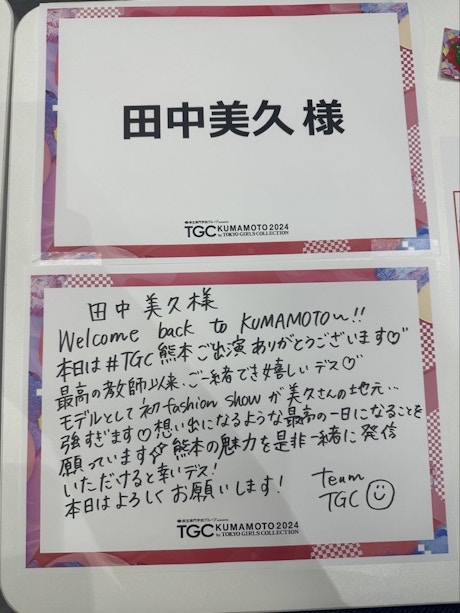 田中美久 様
TGC KUMAMOTO 2024
by TOKYO GIRLS COLLECTION
田中 美久 様
Welcome back to KUMAMOTO〜!!
本日は #TGC 熊本ご出演 ありがとうございます♡
最高の教師以来、ご一緒でき嬉しいデス♡
モデルとして初fashion showが美久さんの地元…
強すぎます♡想い出になるような最高の一日になることを
願っています 熊本の魅力を是非一緒に発信
いただけると幸いデス!
本日はよろしくお願いします!
Team
TGC ☺
TGC KUMAMOTO 2024
by TOKYO GIRLS COLLECTION